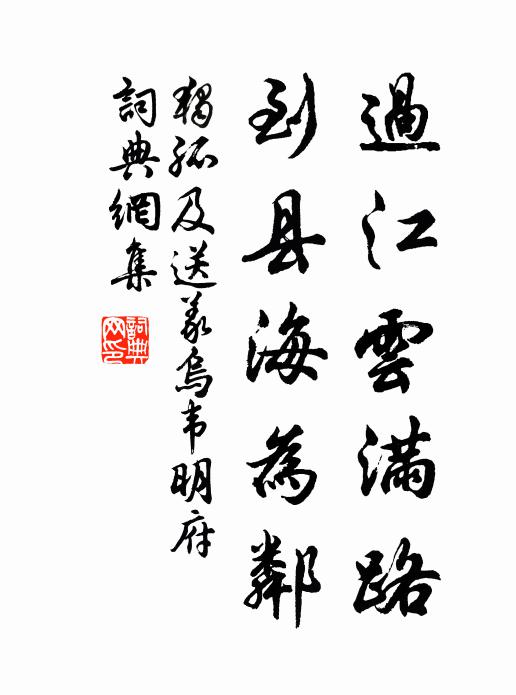 過江雲滿路
到县海為鄰
獨孤及送義烏韦明府
詞典網集
詞典网印